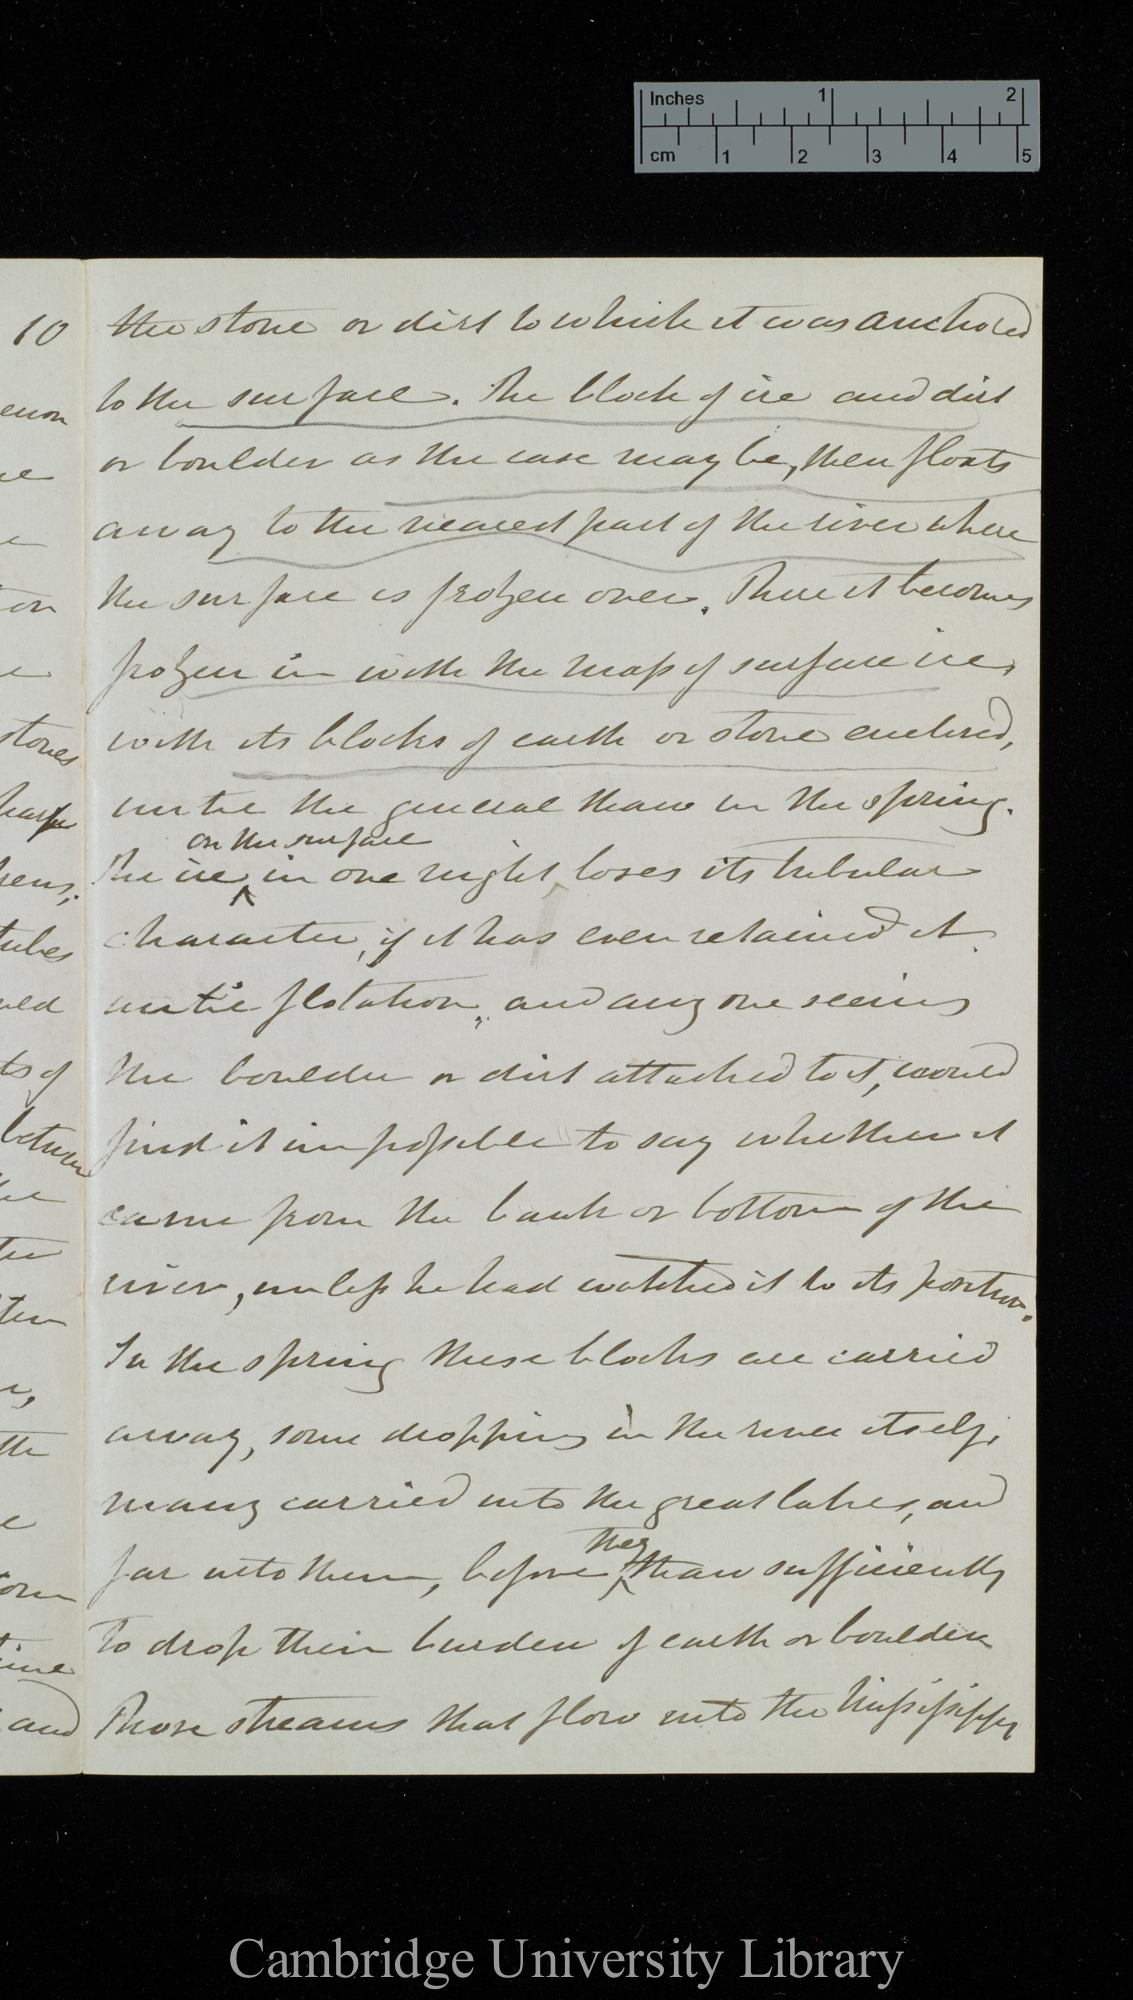 Inches 1 2
cm 1 2 3 4 5
10
the stone or dirt to which it was anchored
to the surface. The block of ice and dirt
or boulder as the case may be, then floats
away to the nearest part of the river where
the surface is frozen over. There it becomes
frozen in with the mass of surface ice,
with its blocks of earth or stone enclosed,
until the general thaw in the spring.
on the surface
The ice in one night, loses its tubular
character, if it has even retained it
until flotation, and any one seeing
the boulder or dirt attached to it, would
find it impossible to say whether it
came from the bank or bottom of the
river, unless he had watched it to its position.
In the spring these blocks are carried
away, some dropping in the river itself,
many carried into the great lakes, and
they
far into them, before thaw sufficiently
to drop their burden of earth or boulder
Those streams that flow into the Mississippi
enon
on
stones
tubes
ts of
between
and
Cambridge University Library